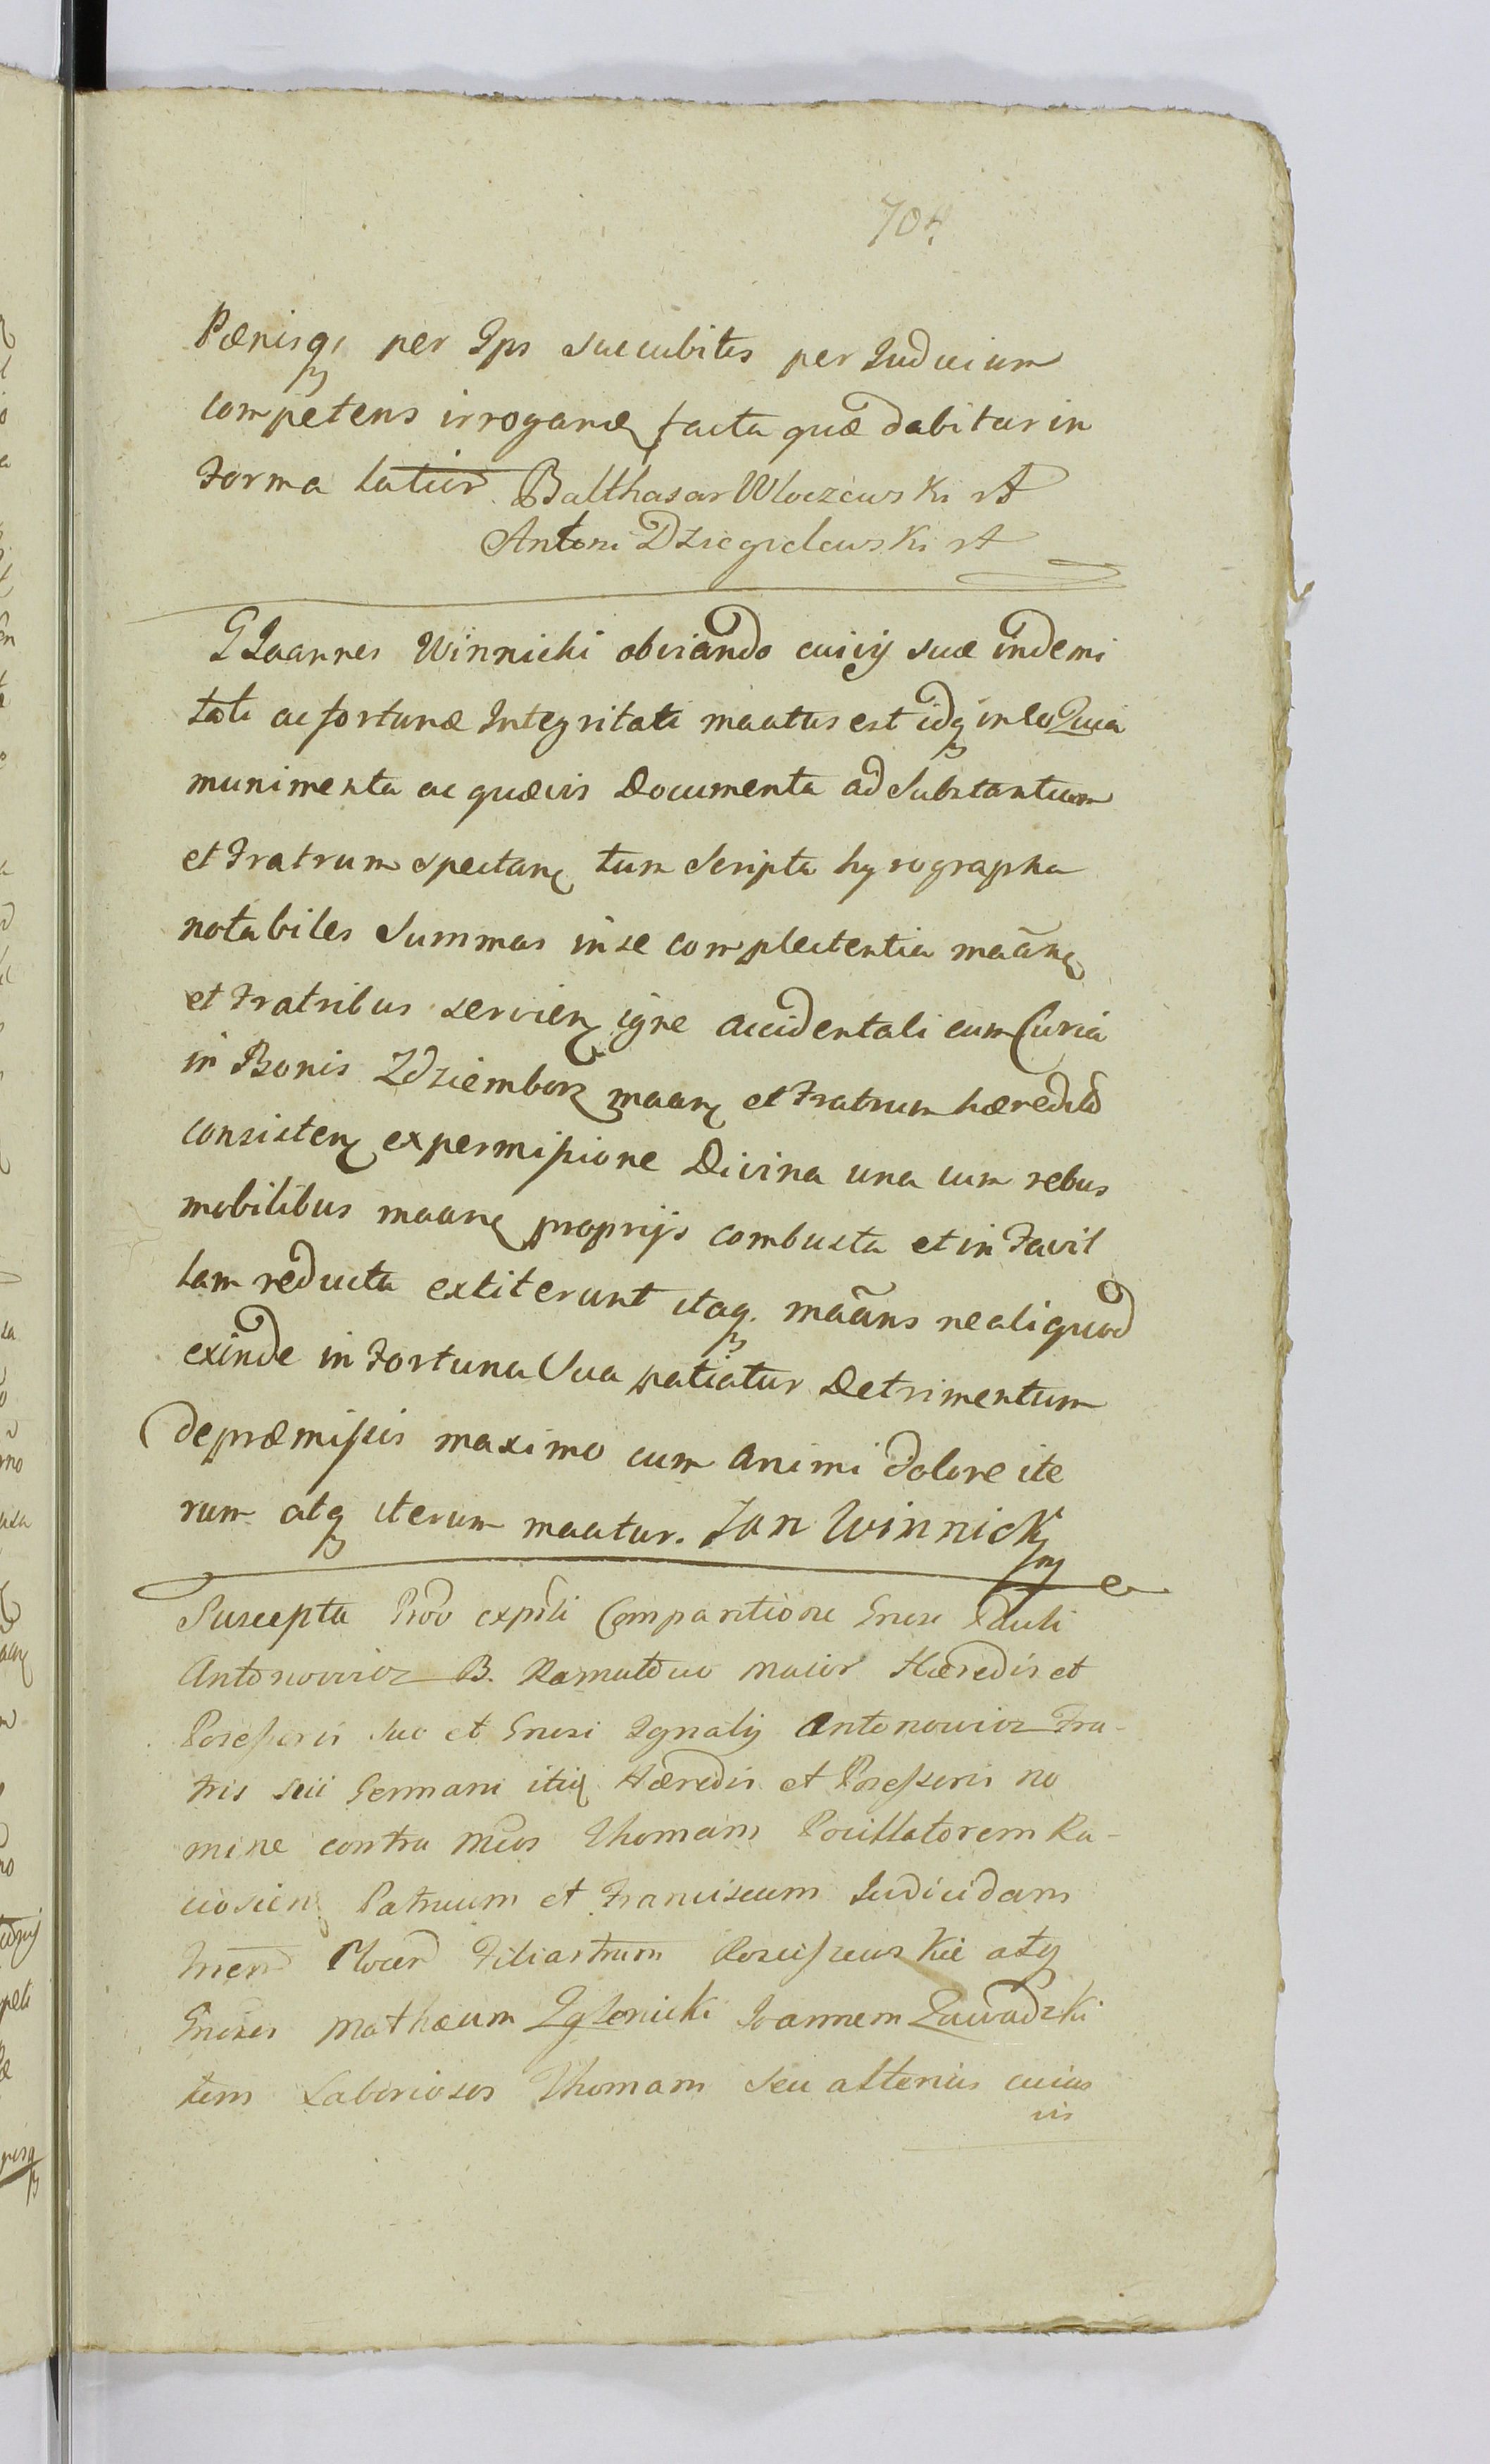 704
Pænisq, per Ips succubitis per Iudicium
competens irrogane facta quæ dabitur in
Forma latior Balthasar Wloczewski A
Antoni Dziegielewski A
G Ioannes Winnicki obviando cuivis suæ indemi
tati ac fortunæ Integritati maatus est idq in eo Quia
munimenta ac quævis Documenta ad Substantiam
et Fratrum spectane tum Scripta hyrographa
notabiles Summas in se complectentia maāne
et Fratribus servien igne accidentali cum Curia
in Bonis Zdziemborz maane et Fratrum hæredit
consisten ex permissione Divina una cum rebus
mobilibus maane proprijs combusta et in Favil
lam reducta extiterunt itaq. maāns ne aliquod
exinde in Fortuna Sua patiatur Detrimentum
de præmissis maximo cum animi dolore ite
rum atq iterum maatur. Jan Winnicki
mp
Suscepta Comparitione Gnosi Pauli
Antonowicz B. Ramutowo maior Hæredis et
Possessoris suo et Gnosi Ignatij Antonowicz Fra-
tris sui Germani itiq Hæredis et Possessoris no
mine contra Thomam Pocillatorem Ra-
Patruum et Franciscum
Filiastrum atq
Gnosos Mathæum Zglenicki Ioannem Zawadzki
tum Laboriosos Thomam seu alterius cuius
vis